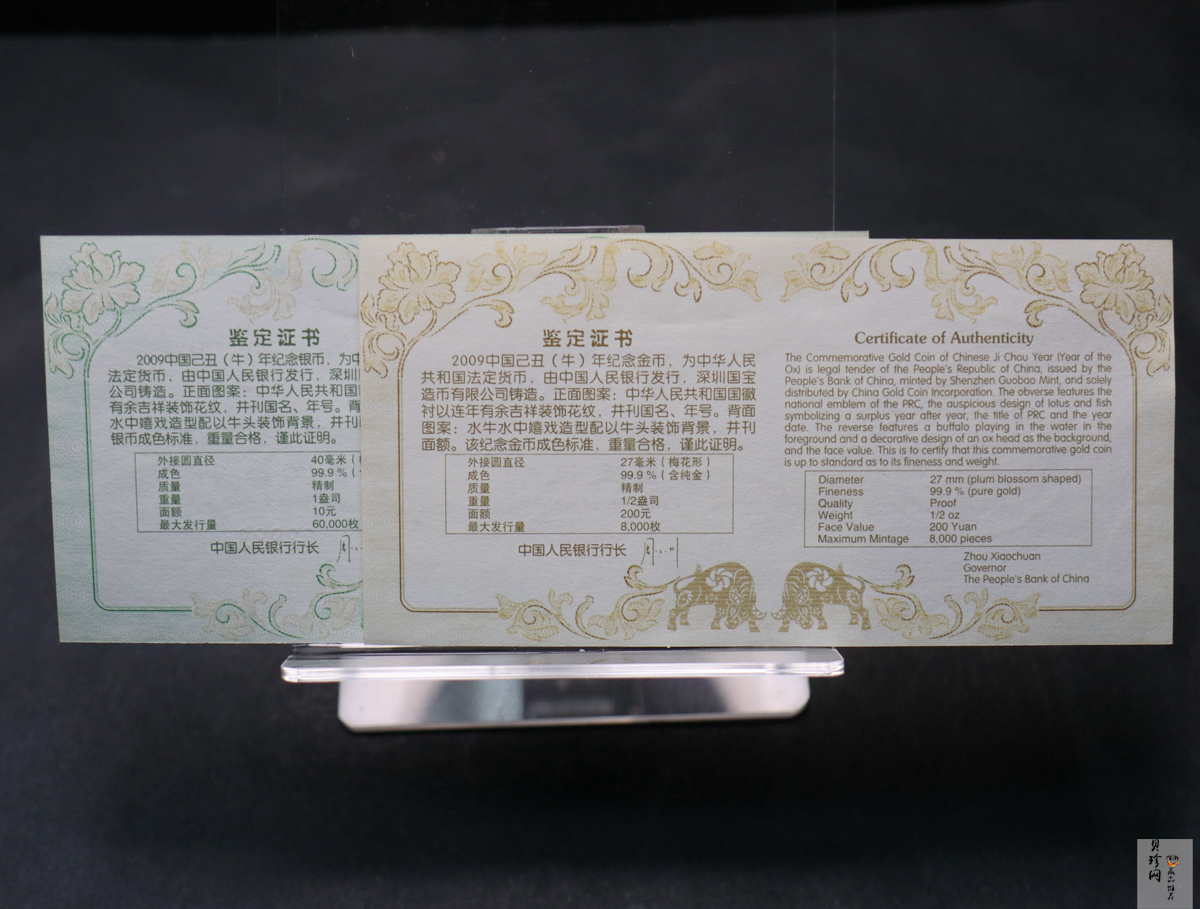 鉴定证书
2009中国己丑（牛）年纪念银币，为中
法定货币，由中国人民银行发行，深圳
公司铸造。正面图案：中华人民共和国
有余吉祥装饰花纹，并刊国名、年号。背
水中嬉戏造型配以牛头装饰背景，并刊
银币成色标准，重量合格，谨此证明。
外接圆直径 40毫米（
成色 99.9％（
质量 精制
重量 1盎司
面额 10元
最大发行量 60,000枚
中国人民银行行长
鉴定证书
2009中国己丑（牛）年纪念金币，为中华人民
共和国法定货币，由中国人民银行发行，深圳国宝
造币有限公司铸造。正面图案：中华人民共和国国徽
衬以连年有余吉祥装饰花纹，并刊国名、年号。背面
图案：水牛水中嬉戏造型配以牛头装饰背景，并刊
面额。该纪念金币成色标准，重量合格，谨此证明。
外接圆直径 27毫米（梅花形）
成色 99.9％（含纯金）
质量 精制
重量 1/2盎司
面额 200元
最大发行量 8,000枚
中国人民银行行长
Certificate of Authenticity
The Commemorative Gold Coin of Chinese Ji Chou Year (Year of the
Ox) is legal tender of the People's Republic of China, issued by the
People's Bank of China, minted by Shenzhen Guobao Mint, and solely
distributed by China Gold Coin Incorporation. The obverse features the
national emblem of the PRC, the auspicious design of lotus and fish
symbolizing a surplus year after year, the title of PRC and the year
date. The reverse features a buffalo playing in the water in the
foreground and a decorative design of an ox head as the background,
and the face value. This is to certify that this commemorative gold coin
is up to standard as to its fineness and weight.
Diameter 27 mm (plum blossom shaped)
Fineness 99.9 % (pure gold)
Quality Proof
Weight 1/2 oz
Face Value 200 Yuan
Maximum Mintage 8,000 pieces
Zhou Xiaochuan
Governor
The People's Bank of China
贝珍网